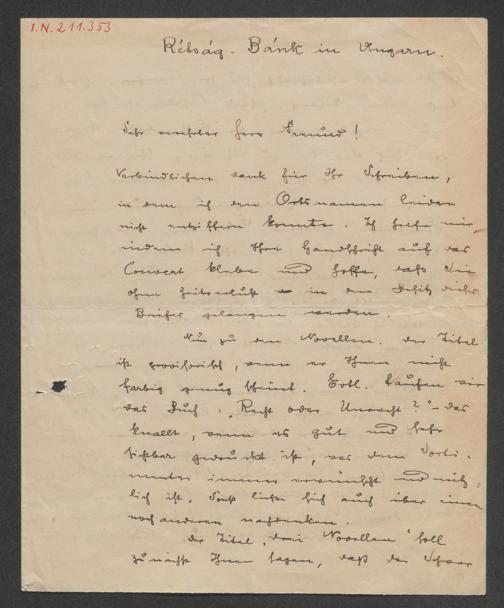 I.N. 211.353
Rétság. Bánk in Ungarn.
Sehr verehrter Herr Freund!
Verbindlichen Dank für Ihr Schreiben,
in dem ich den Ortsnamen leider
nicht entziffern konnte. Ich helfe mir,
indem ich Ihre Handschrift auf das
Couvert klebe und hoffe, daß Sie
ohne Zeitverlust in den Besitz dieses
Briefes gelangen werden.
Nun zu den Novellen. Der Titel
ist provisorisch, wenn er Ihnen nicht
farbig genug scheint. Evtl. taufen wir
das Buch: „Recht oder Unrecht?" – das
knallt, wenn es gut und sehr
sichtbar gedruckt ist, was dem Sorti-
menter immer erwünscht und nütz-
lich ist. Doch ließe sich auch über einen
noch anderen nachdenken.
Der Titel „drei Novellen" soll
zunächst Ihnen sagen, daß der